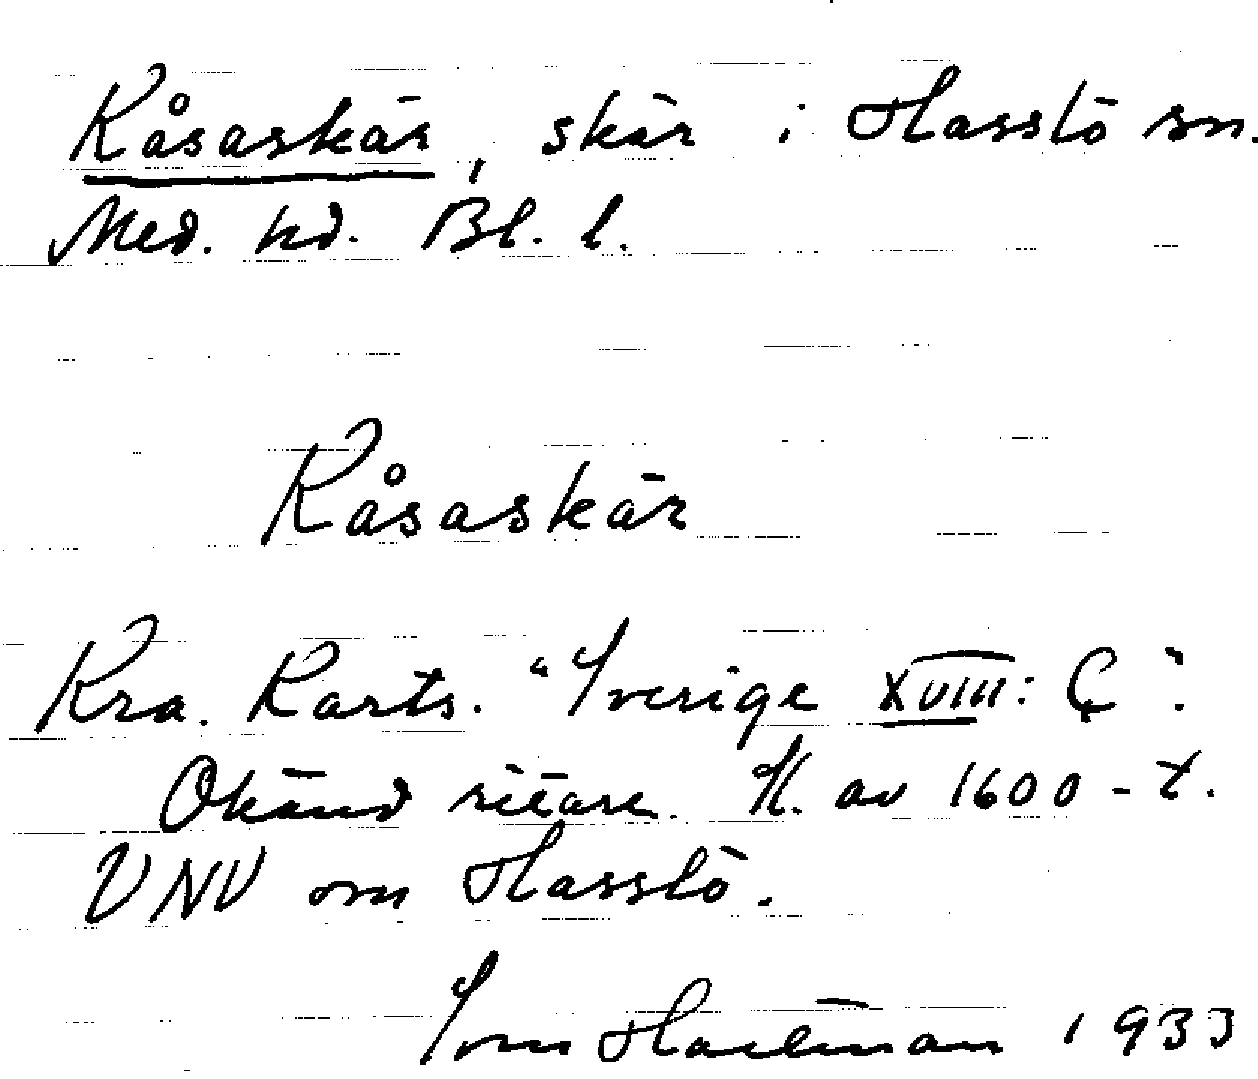 Kåsaskär, skär i Hasslö sn.
Med. hd. Bl. l.
Kåsaskär
Kra. Karts. "Sverige XVIII: Ç".
Okänd ritare. K. av 1600-t.
VNV om Hasslö.
1933